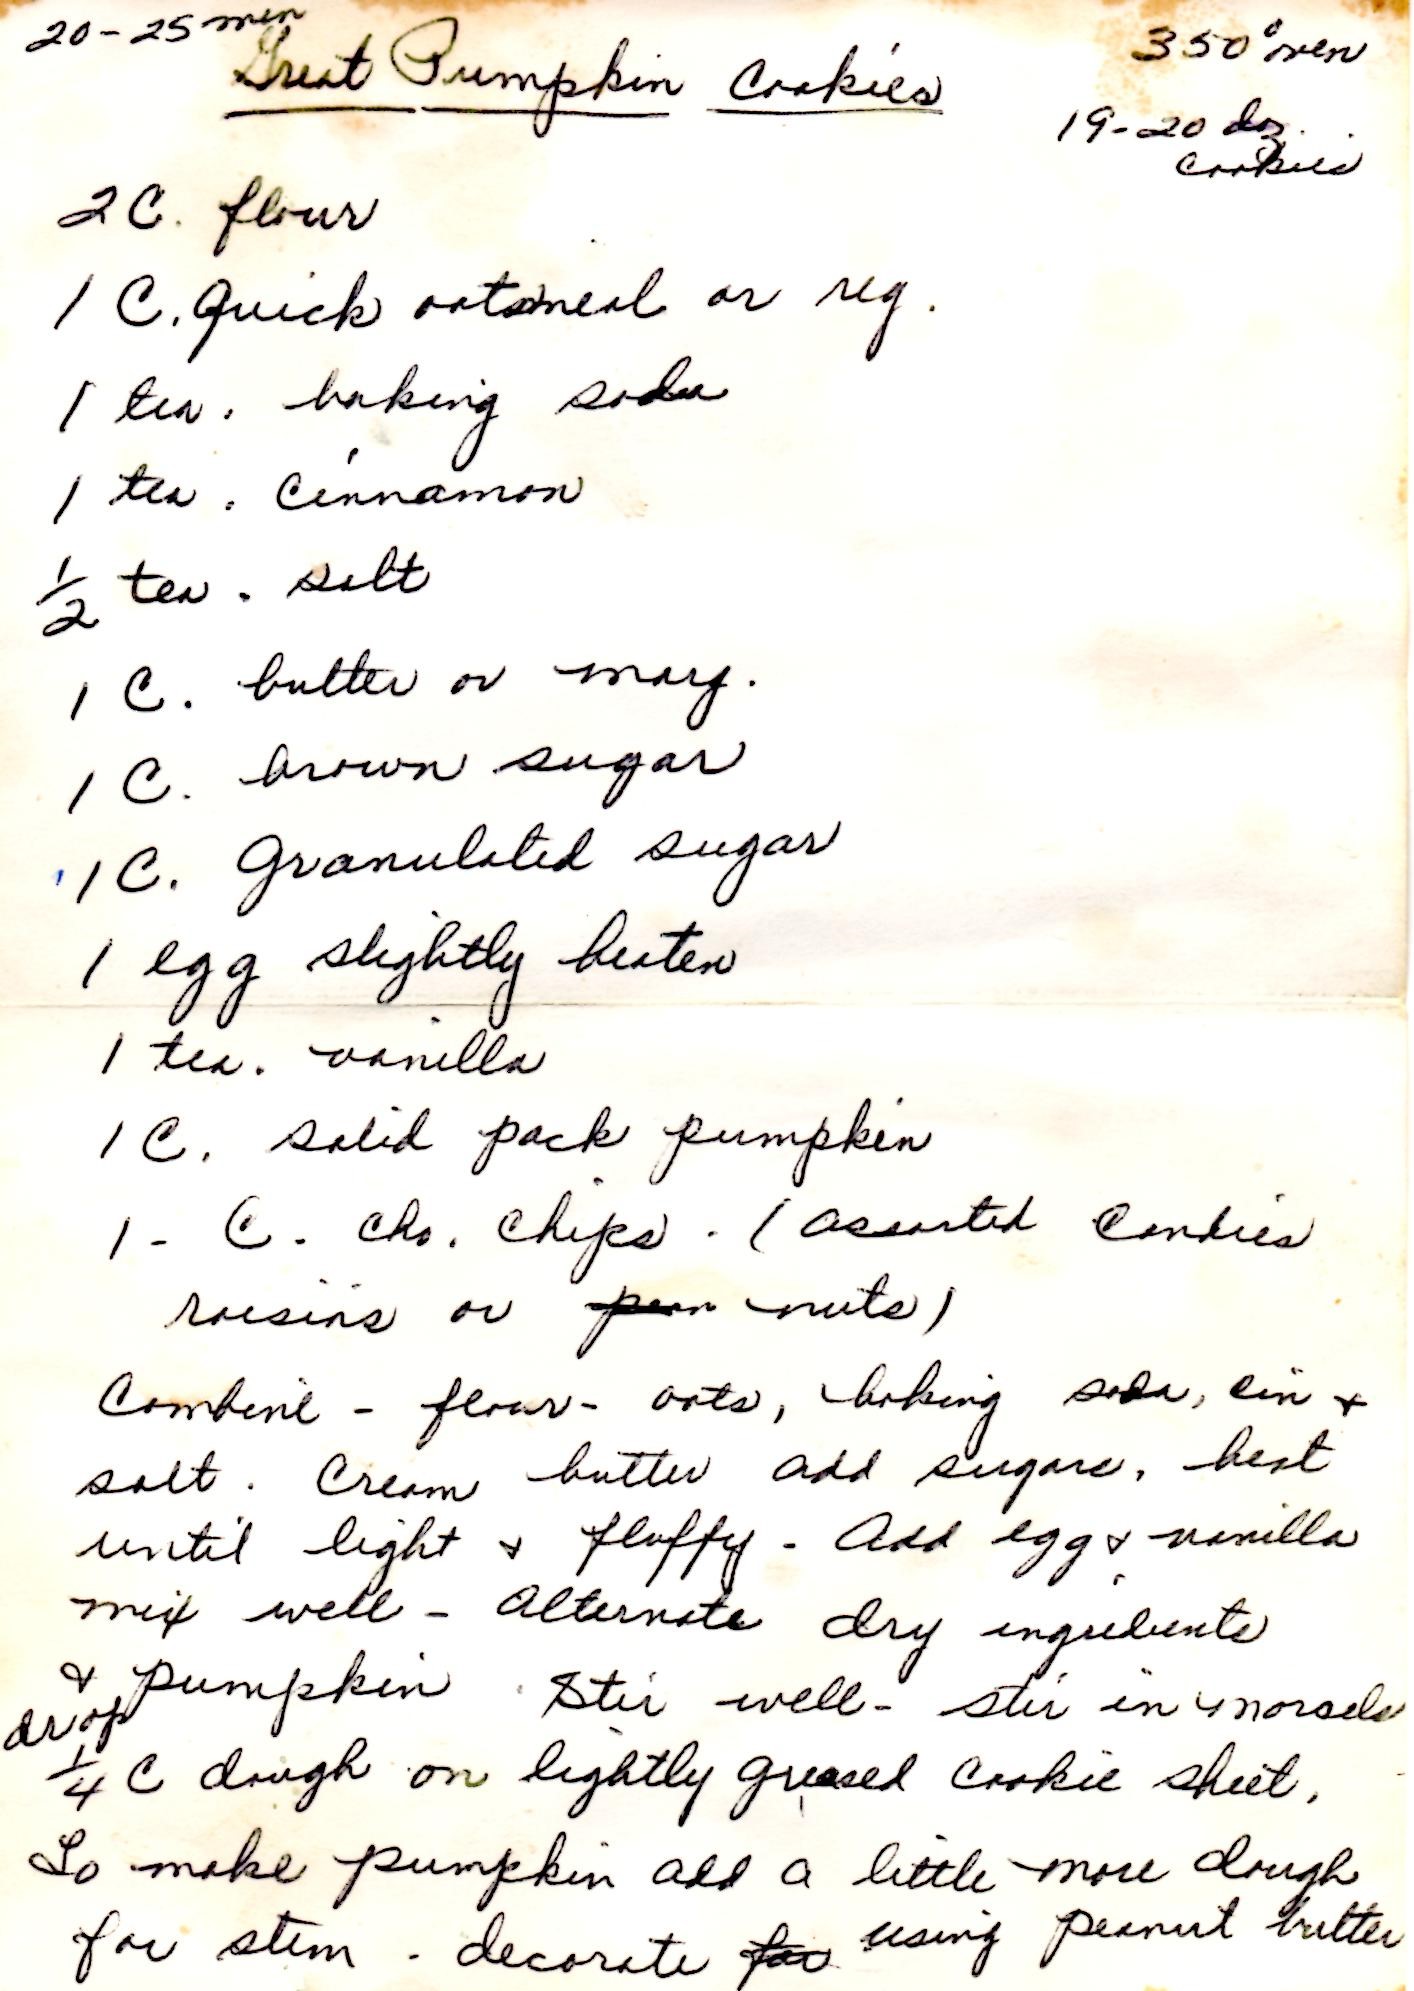 20-25 min
Great Pumpkin Cookies
350° oven
19-20 doz.
cookies
2 C. flour
1 C. Quick oatsmeal or reg.
1 tea. baking soda
1 tea. Cinnamon
1/2 tea. salt
1 C. butter or marg.
1 C. brown sugar
1 C. Granulated sugar
1 egg slightly beaten
1 tea. vanilla
1 C. solid pack pumpkin
1 - C. cho. chips. (assorted Candies
raisins or pean nuts)
Combine - flour - oats, baking soda, cin &
salt. Cream butter add sugars, beat
until light & fluffy - Add egg & vanilla
mix well - Alternate dry ingredients
& pumpkin Stir well - stir in morsels
drop
1/4 C dough on lightly greased cookie sheet.
To make pumpkin add a little more dough
for stem. decorate for using peanut butter